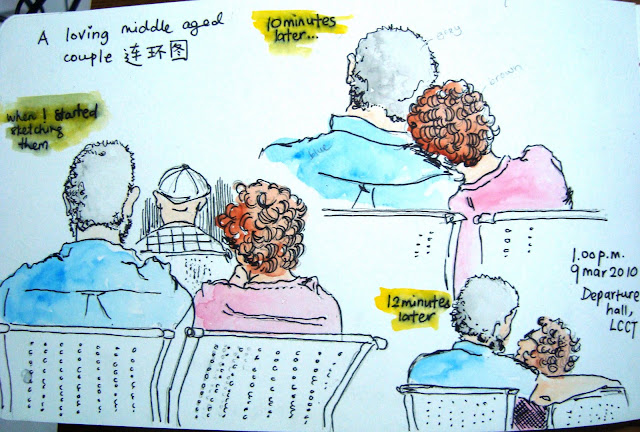 A loving middle aged
couple 连环图
when I started
sketching
them
10 minutes
later...
grey
brown
blue
12 minutes
later
1.00 p.m.
9 mar 2010
Departure
hall,
LCCT